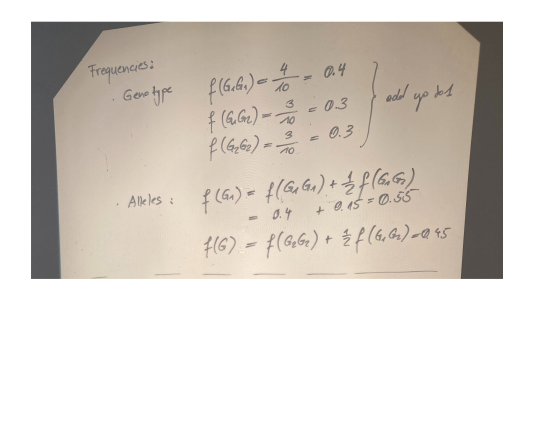 Frequencies:
· Genotype f(G₁G₁) = 4/10 = 0.4
f(G₁G₂) = 3/10 = 0.3
f(G₂G₂) = 3/10 = 0.3
add up to 1
· Alleles: f(G₁) = f(G₁G₁) + 1/2 f(G₁G₂)
= 0.4 + 0.15 = 0.55
f(G) = f(G₂G₂) + 1/2 f(G₁G₂) = 0.45